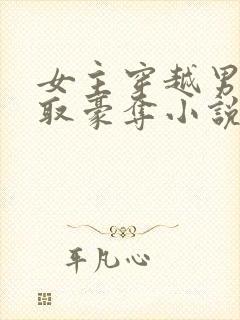 女主穿越男
取豪夺小說
平凡心